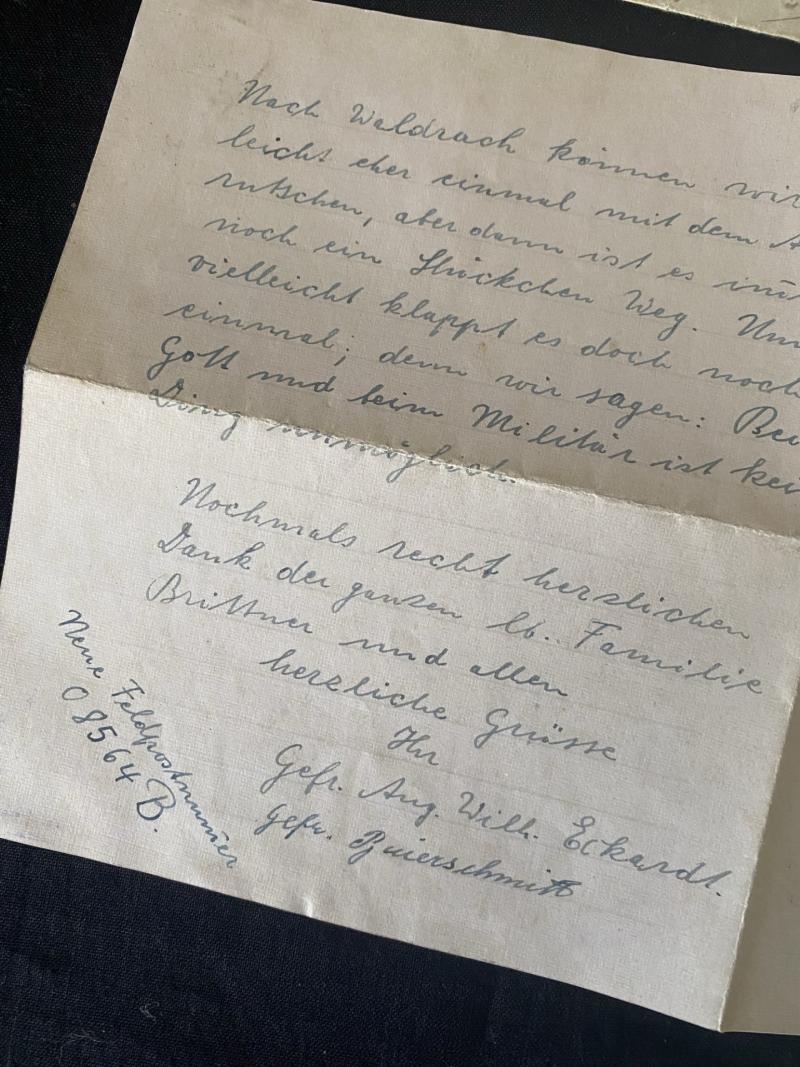 Nach Waldrach können wir
leicht eher einmal mit dem A
rutschen, aber dann ist es im̄
noch ein Stückchen Weg. Un
vielleicht klappt es doch noch
einmal; denn wir sagen: Bei
Gott und beim Militär ist kei
Ding unmöglich.
Nochmals recht herzlichen
Dank der ganzen lb. Familie
Brittner und allen
herzliche Grüsse
Ihr
Gefr. Aug. Wilh. Eckardt.
Gefr.
Neue Feldpostnum̄er
08564 B.